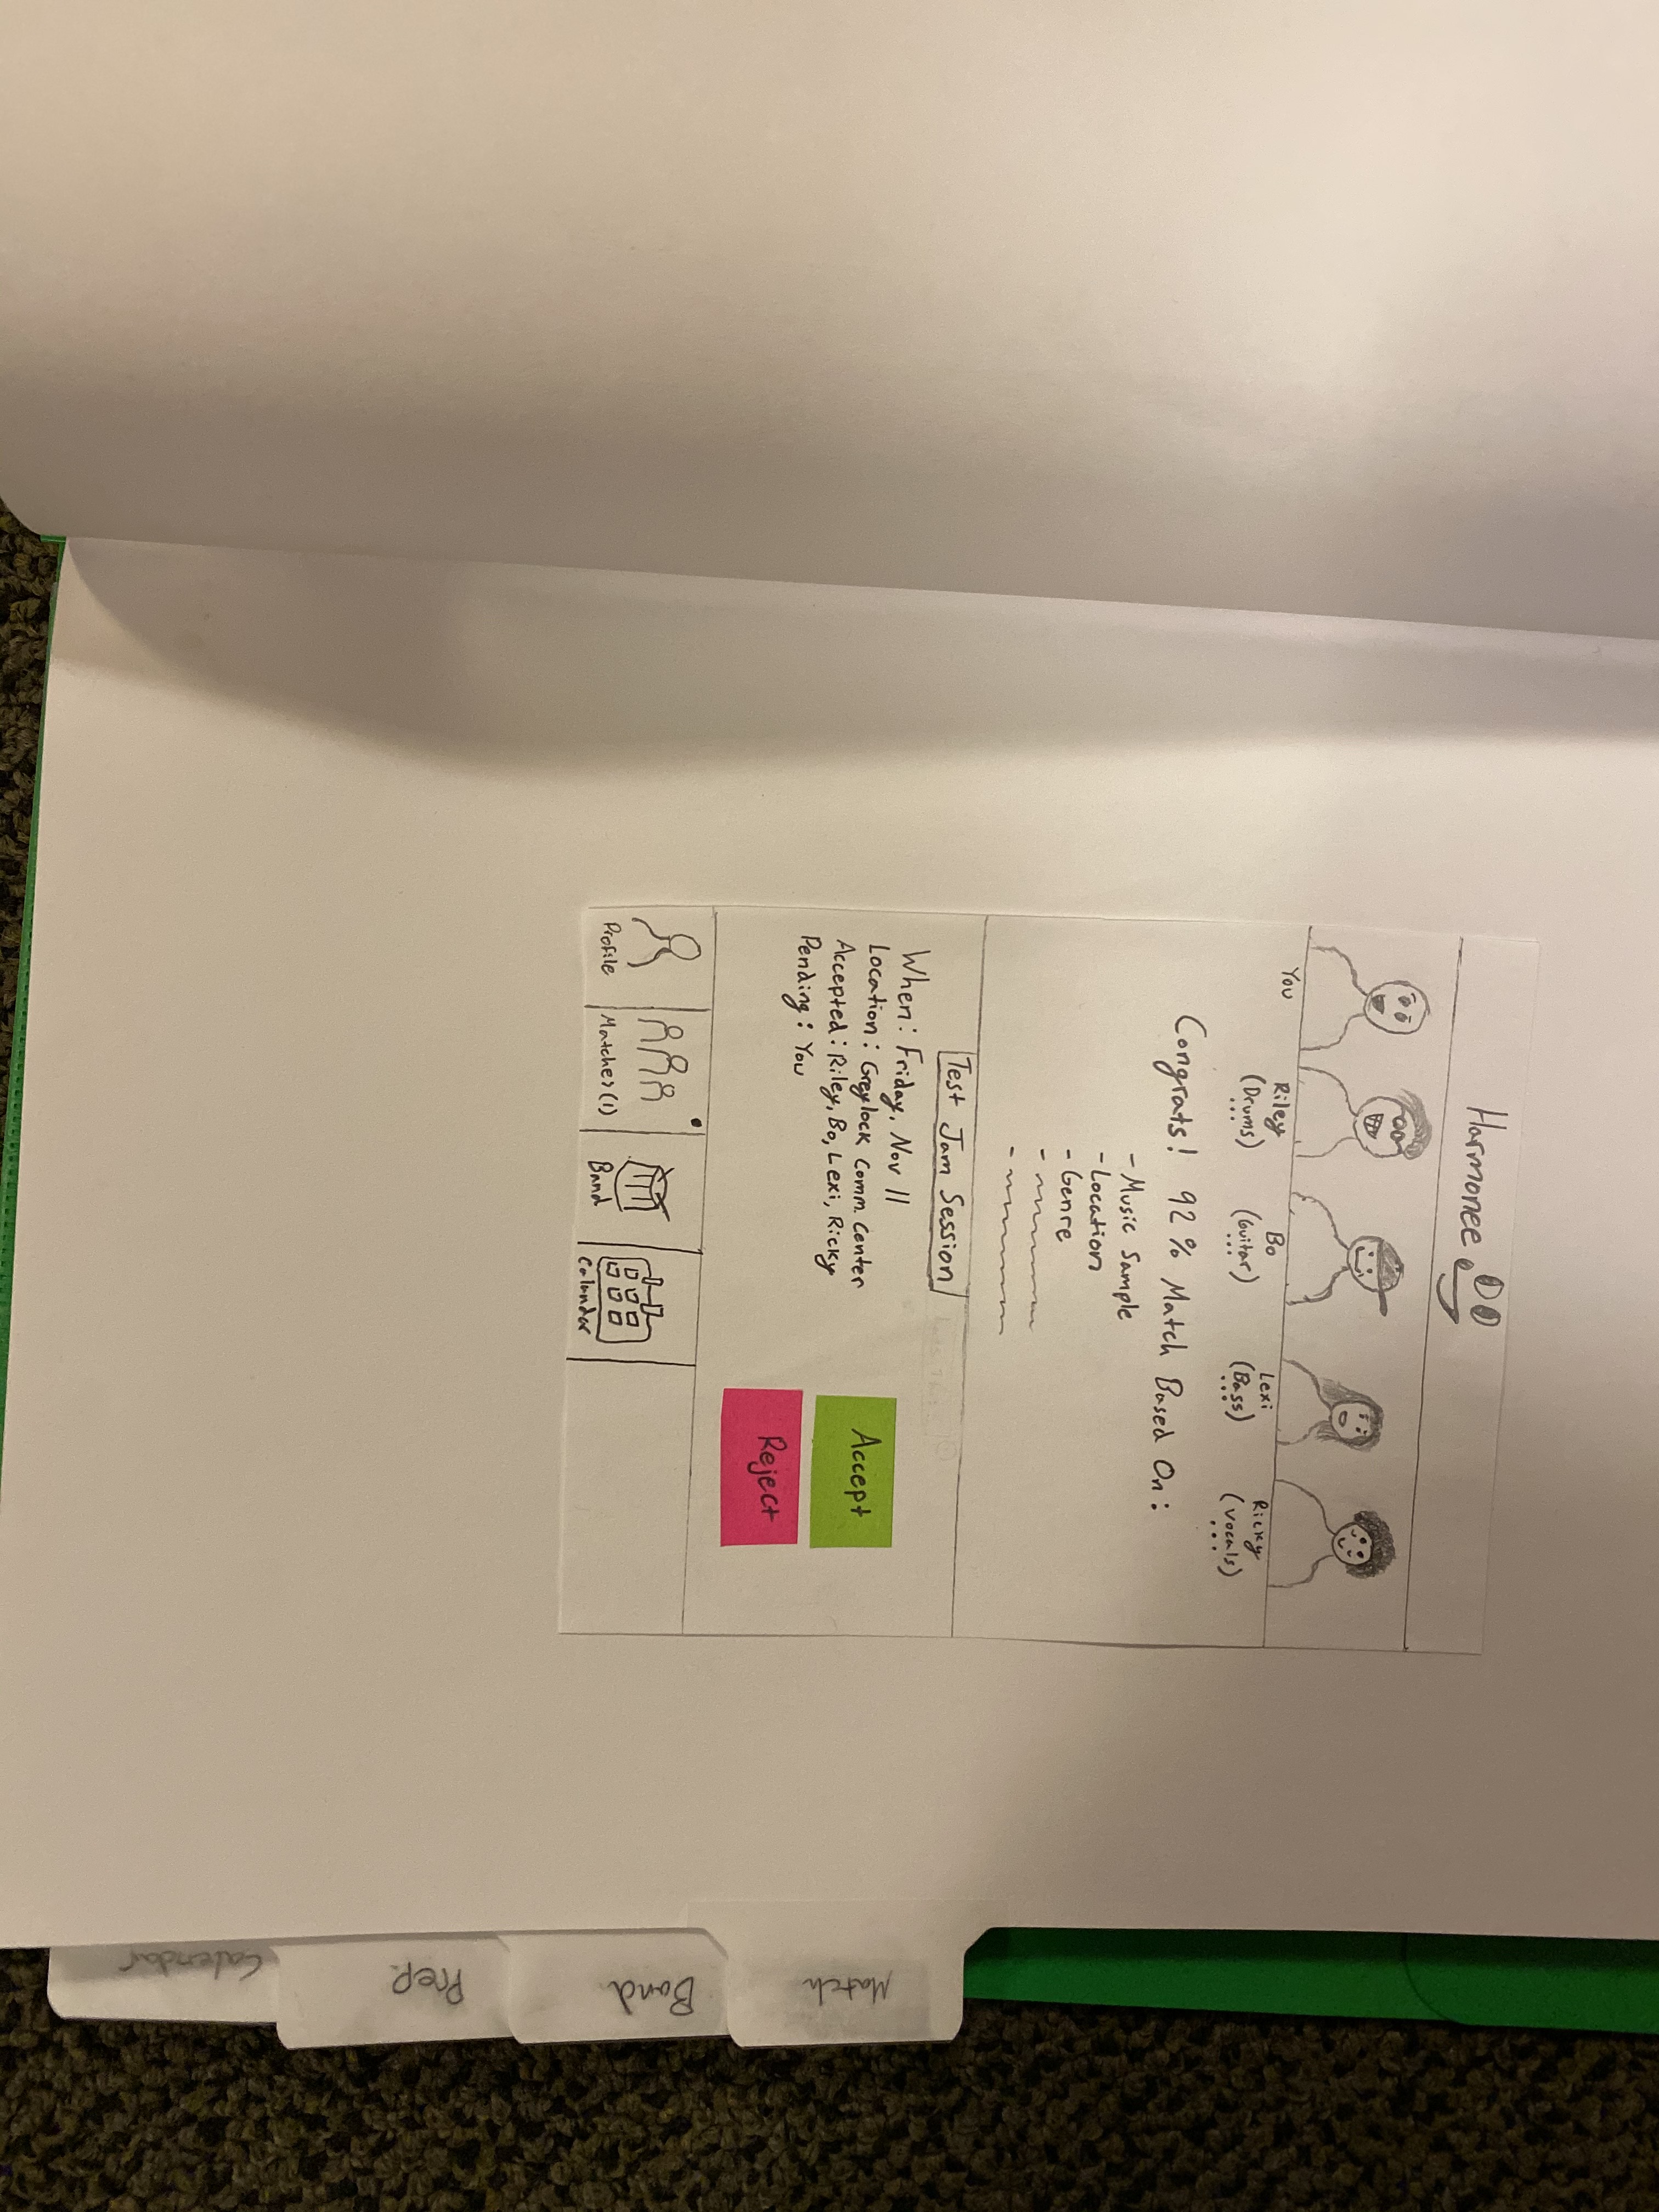 Harmonee
You
Riley
(Drums)
...
Bo
(Guitar)
...
Lexi
(Bass)
...
Ricky
(vocals)
...
Congrats! 92% Match Based On:
- Music Sample
- Location
- Genre
Test Jam Session
When: Friday, Nov 11
Location: Greylock Comm. Center
Accepted: Riley, Bo, Lexi, Ricky
Pending: You
Accept
Reject
Profile
Matches(1)
Band
Calandar
Match
Band
Prep
Calendar